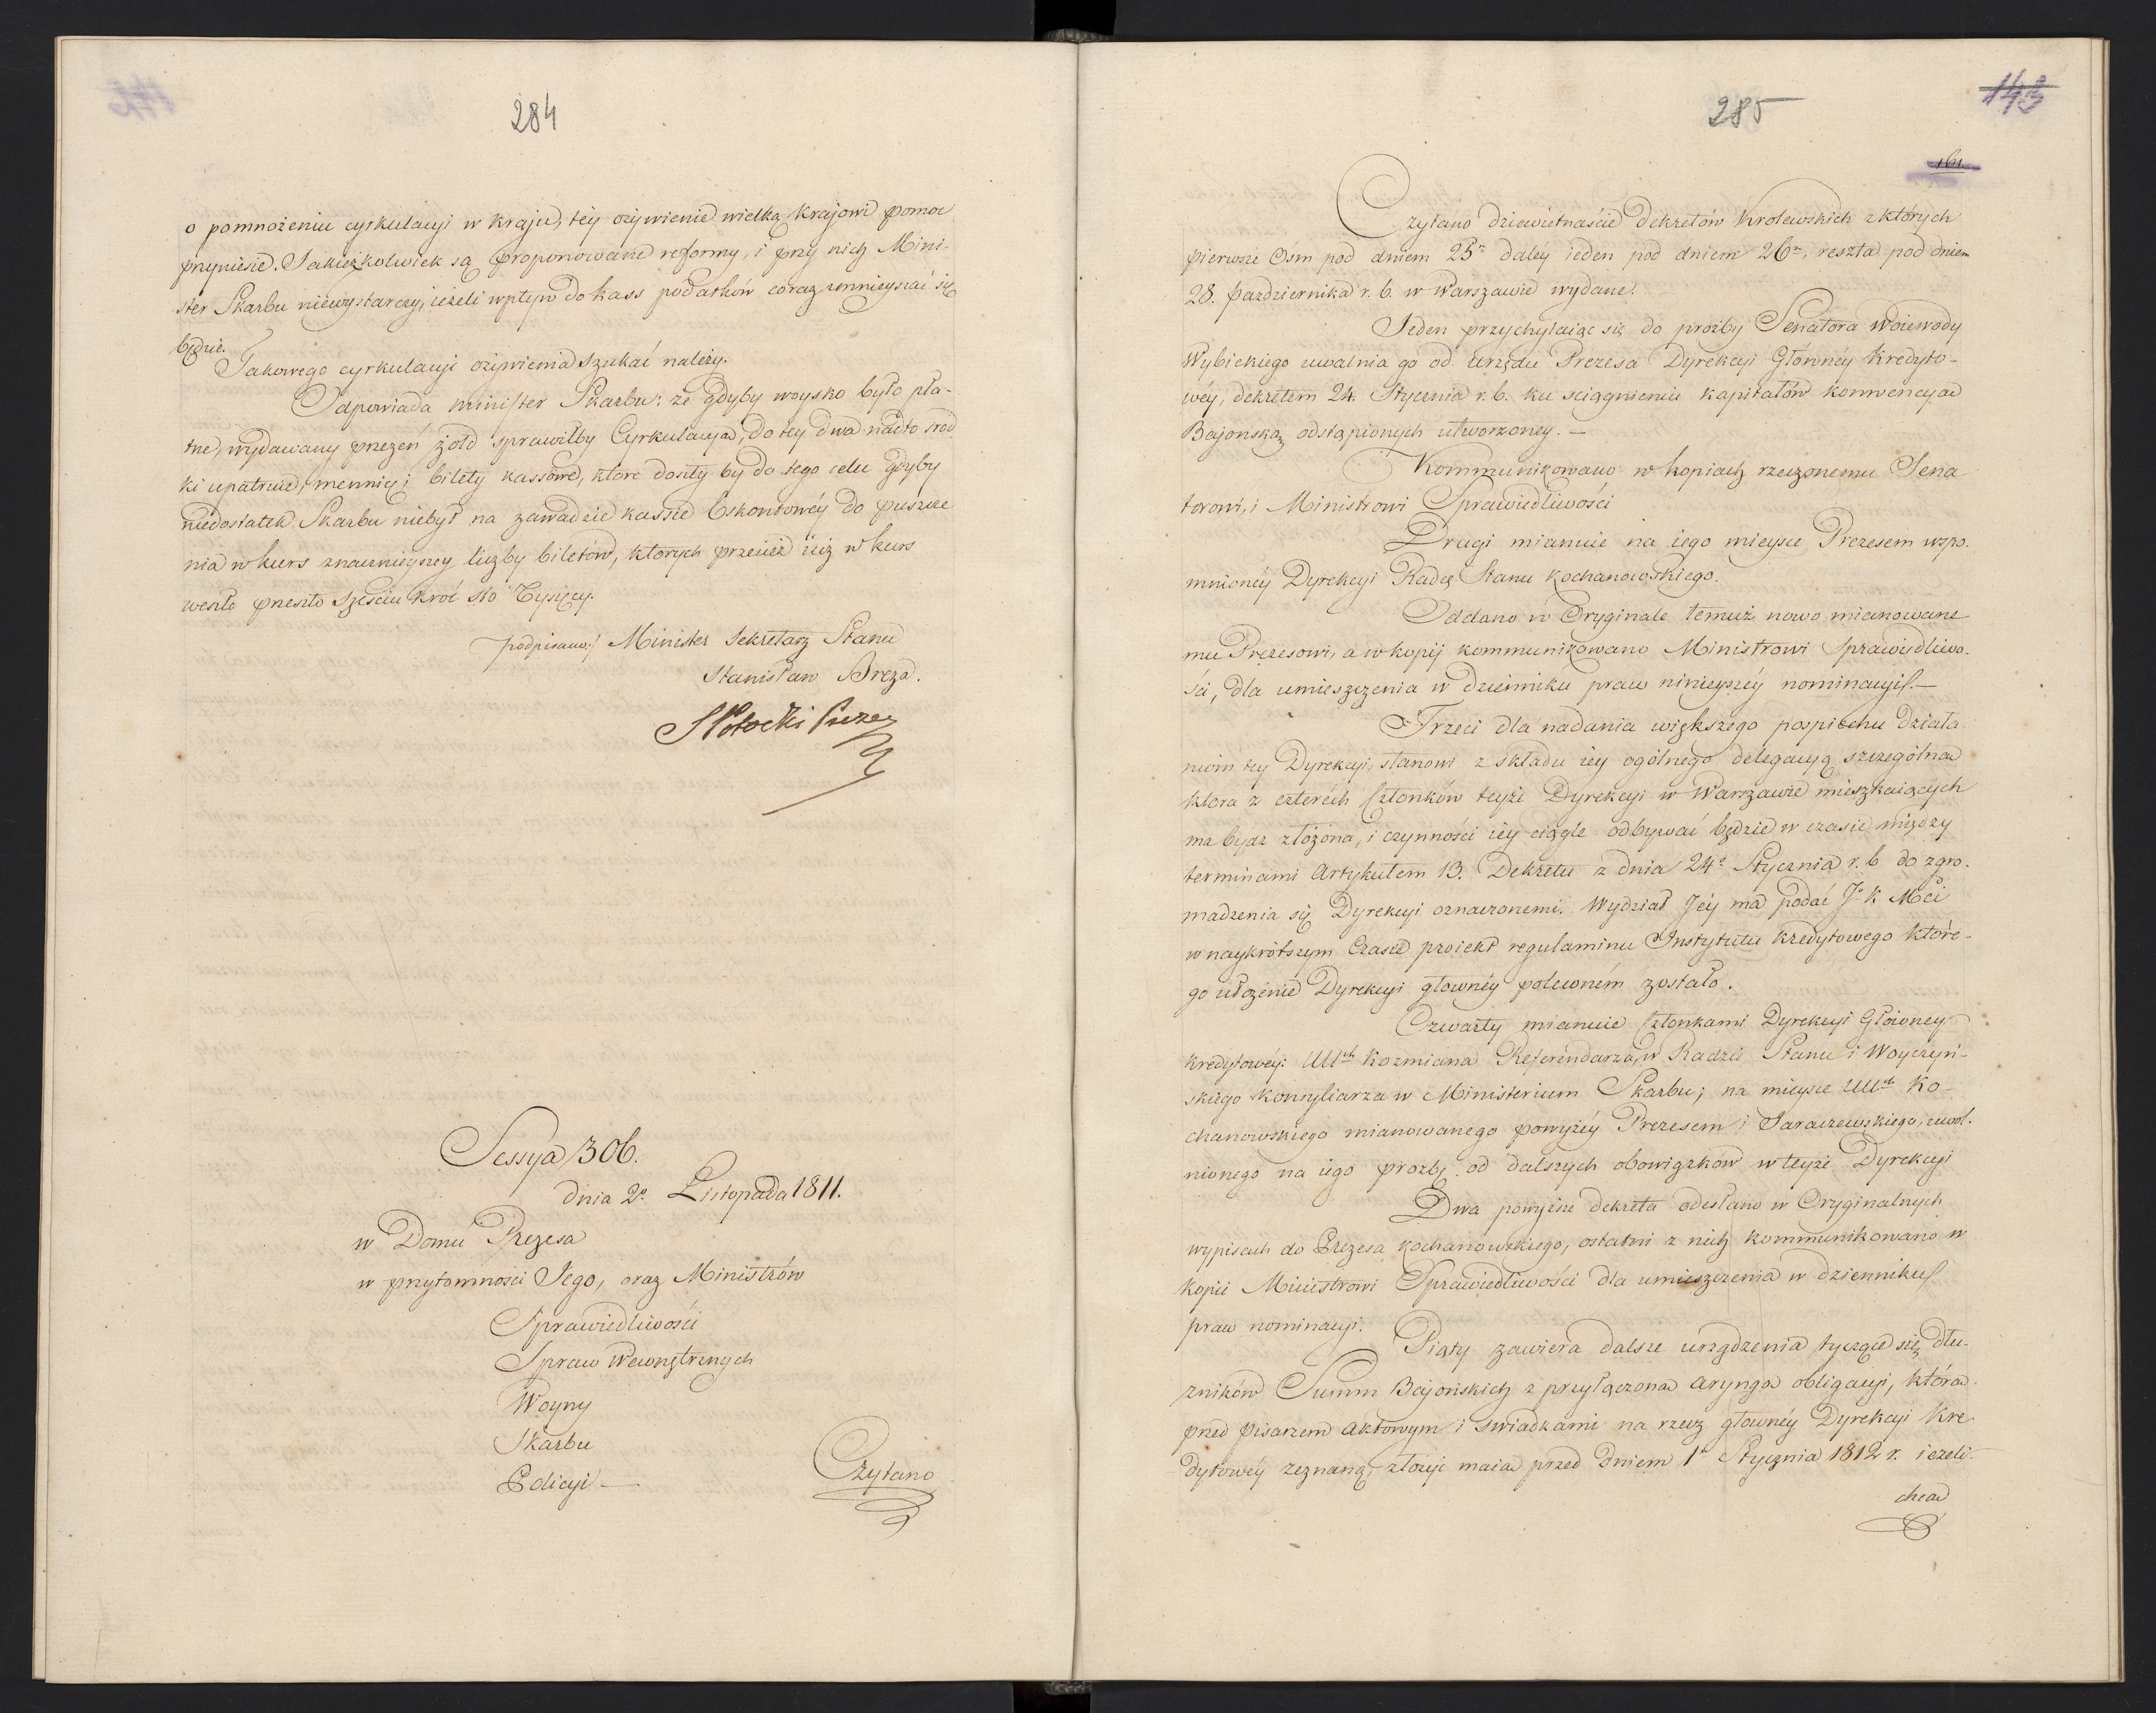 284
o pomnożeniu cyrkulacyi w kraju, tey ożywienie wielką krajowi pomoc
przyniesie. Jakieżkolwiek są proponowane reformy, i przy nich Mini-
ster Skarbu niewystarczy, ieżeli wpływ do kass podatków coraz zmnieyszać się
będzie.
Takowego cyrkulacyi ożywienia szukać należy.
Odpowiada minister Skarbu: że gdyby woysko było pła-
tne, wydawany przezeń żołd sprawiłby Cyrkulacyą, do tey dwa nadto srod
ki upatruie, mennicę i bilety kassowe, które doszły by do tego celu gdyby
niedostatek Skarbu niebył na zawadzie kassie Eskontowéy do puszcze
nia w kurs znacznieyszey liczby biletów, których przecież iuż w kurs
weszło przeszło sześciu kroć sto Tysięcy.
podpisano/ Minister Sekretarz Stanu
Stanisław Breza.
S Potocki Prezes
Sessya 306.
dnia 2º Listopada 1811.
w Domu Prezesa
w przytomności Jego, oraz Ministrów
Sprawiedliwości
Spraw Wewnętrznych
Woyny
Skarbu
Policyi —
Czytano
285
143
161
Czytano dziewietnaście dekretów Krolewskich z których
pierwsze Ośm pod dniem 25º daléy ieden pod dniem 26º, reszta pod dniem
28. Pazdziernika r. b. w Warszawie wydane.
Jeden przychylaiąc się do prośby Senatora Woiewody
Wybickiego uwalnia go od urzędu Prezesa Dyrekcyi Głównéy Kredyto-
wéy, dekretem 24. Stycznia r. b. ku sciągnieniu kapitałów konwencyą
Bajońską odstąpionych utworzoney. —
Kommunikowano w kopiach rzeczonemu Sena
torowi, i Ministrowi Sprawiedliwości
Drugi mianuie na iego mieysce Prezesem wspo-
mnionéy Dyrekcyi Radcę Stanu Kochanowskiego.
Oddano w Oryginale temuż nowo mianowane
mu Prezesowi, a w kopij kommunikowano Ministrowi Sprawiedliwo-
ści, dla umieszczenia w dzienniku praw ninieyszéy nominacyi. —
Trzeci dla nadania większego pospiechu działa
niom tey Dyrekcyi, stanowi z składu iey ogólnego delegacyą szczególną
która z czterech Członków teyże Dyrekcyi w Warszawie mieszkaiących
ma bydź złożona, i czynności iey ciągle odbywać będzie w czasie między
terminami Artykułem 13. Dekretu z dnia 24º Stycznia r. b do zgro-
madzenia się Dyrekcyi oznaczonemi. Wydział Jéy ma podać J. K Mći
w naykrótszym Czasie projekt regulaminu Instytutu Kredytowego które-
go ułożenie Dyrekcyi głownéy poleconém zostało.
Czwarty mianuie Członkami Dyrekcyi Główney
Kredytowéy: Kozmiana Referendarza w Radzie Stanu i Woyczyń-
skiego Konsyliarza w Ministerium Skarbu; na mieysce Ko-
chanowskiego mianowanego powyżéy Prezesem i Jaraczewskiego, uwol-
nionego na iego prozbę od dalszych obowiązków w teyże Dyrekcyi
Dwa powyższe dekreta odesłano w Oryginalnych
wypisach do Prezesa Kochanowskiego, ostatni z nich kommunikowano w
kopii Ministrowi Sprawiedliwości dla umieszczenia w dzienniku
praw nominacyi.
Piąty zawiera dalsze urządzenia tyczące się dłu-
żników Summ Bajońskich z przyłączoną Aryngą obligacyi, którą
przed pisarzem Aktowym i Swiadkami na rzecz głownéy Dyrekcyi Kre
dytowéy zeznaną, złożyć maią przed dniem 1º Stycznia 1812 r. ieżeli
chcą